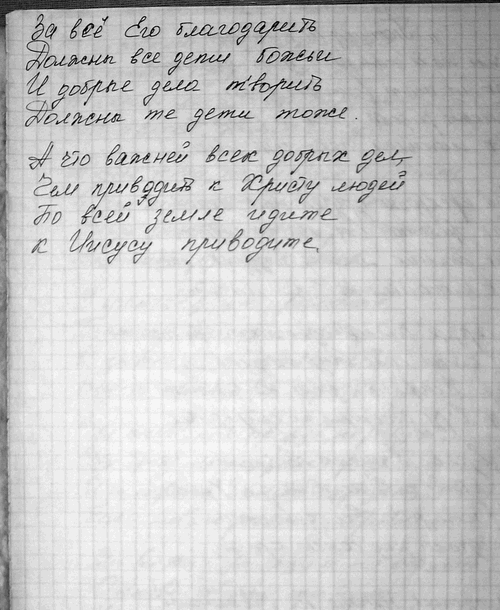 За всё Его благодарить
Должны все дети божьи
И добрые дела творить
Должны те дети тоже.
А что важней всех добрых дел,
Чем приводить к Христу людей
По всей земле идите
к Иисусу приводите.